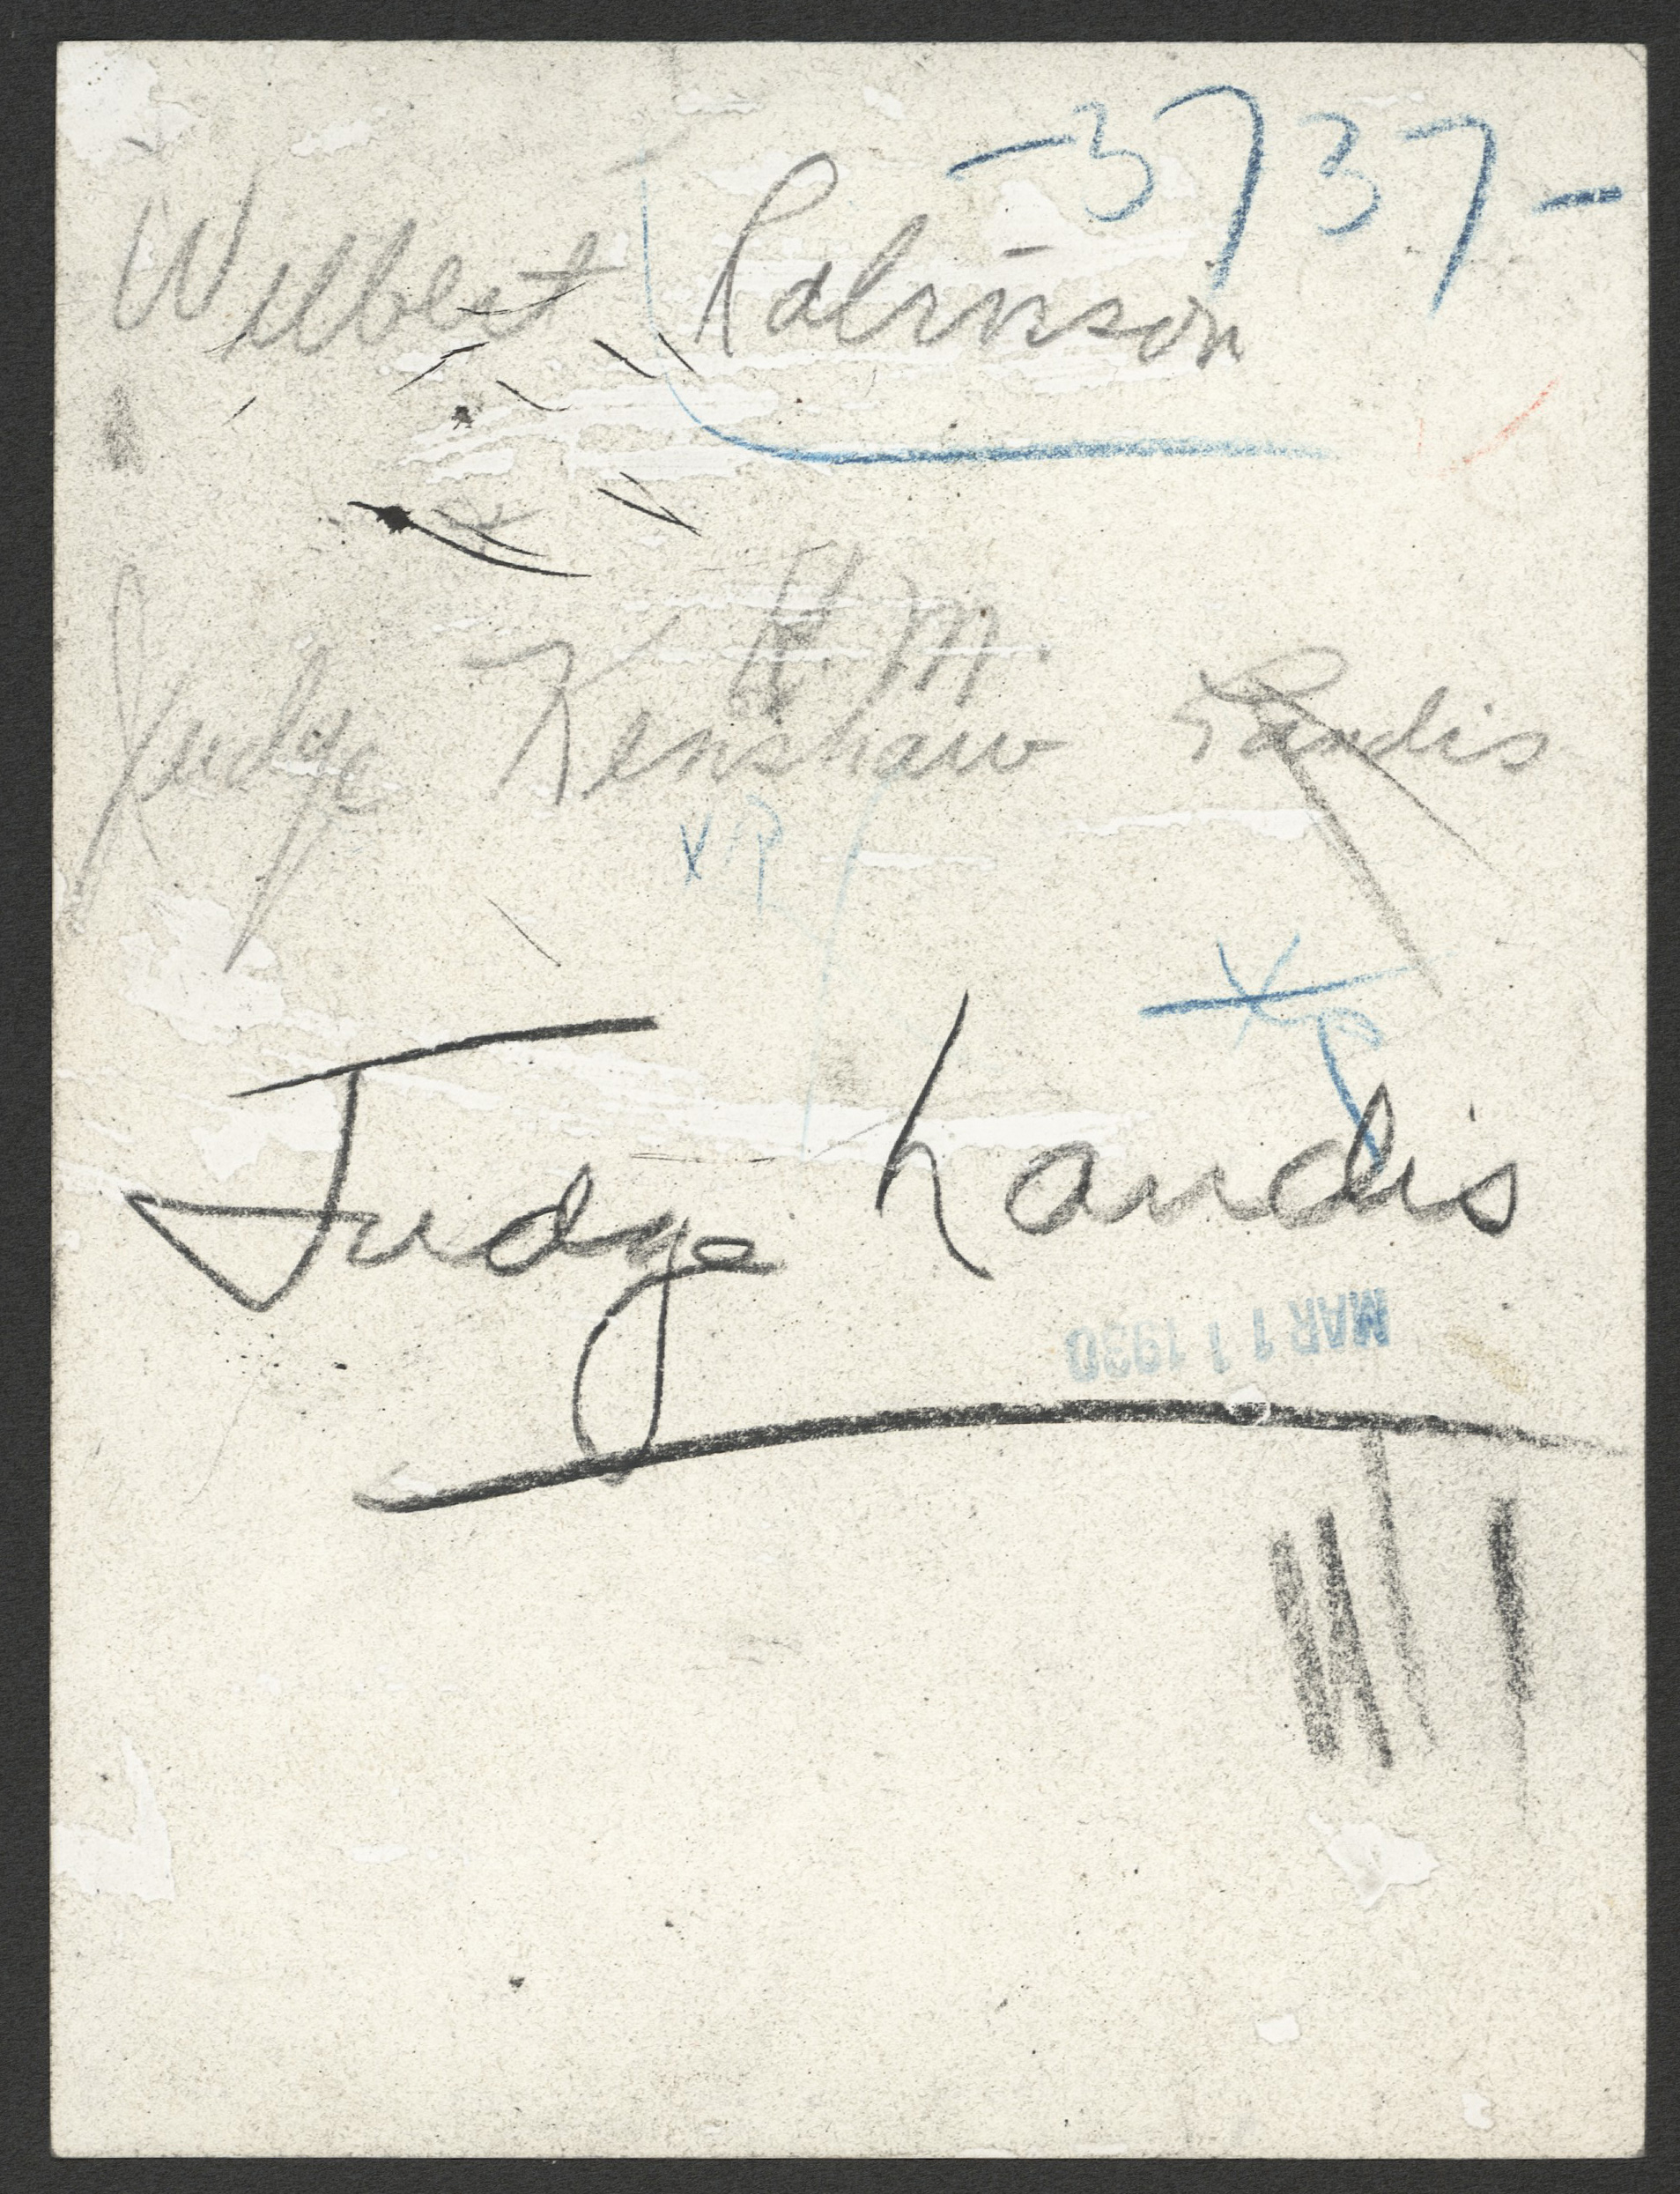 -3737-
Wilbert Robinson
K. M.
Judge Kenshaw Landis
Judge Landis
MAR 11 1930